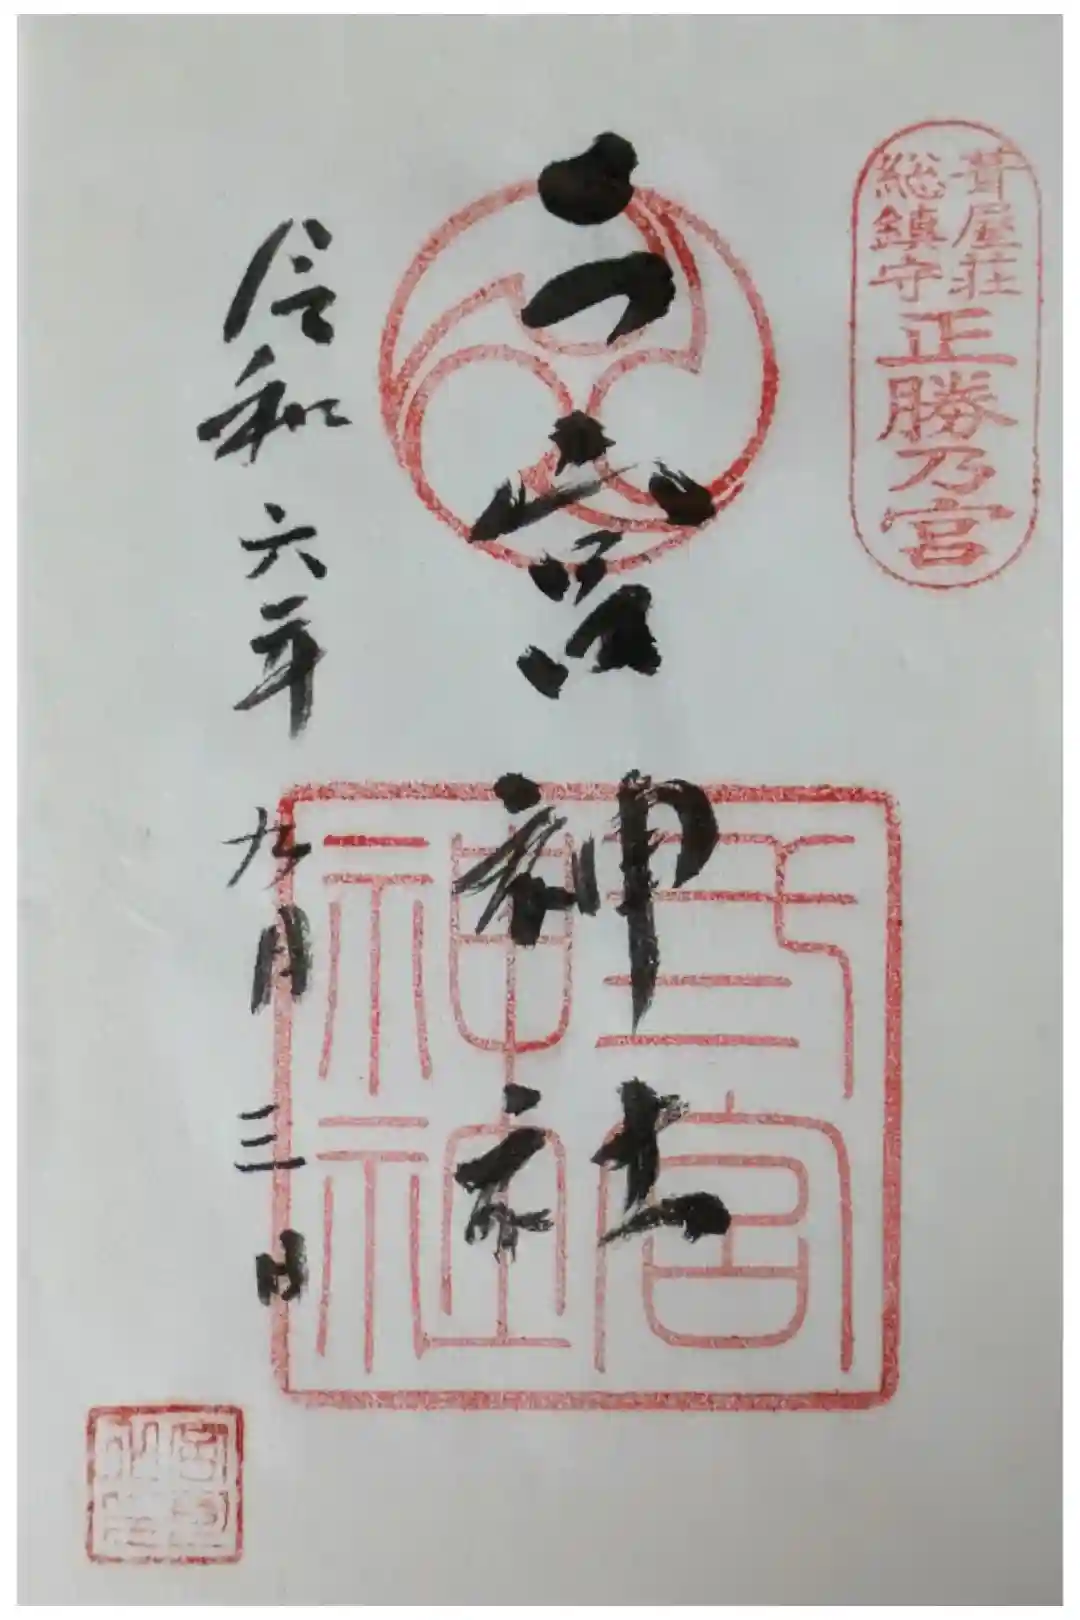 葺屋荘
総鎮守
正勝乃宮
二宮神社
弍宮
神社
令和六年九月三日